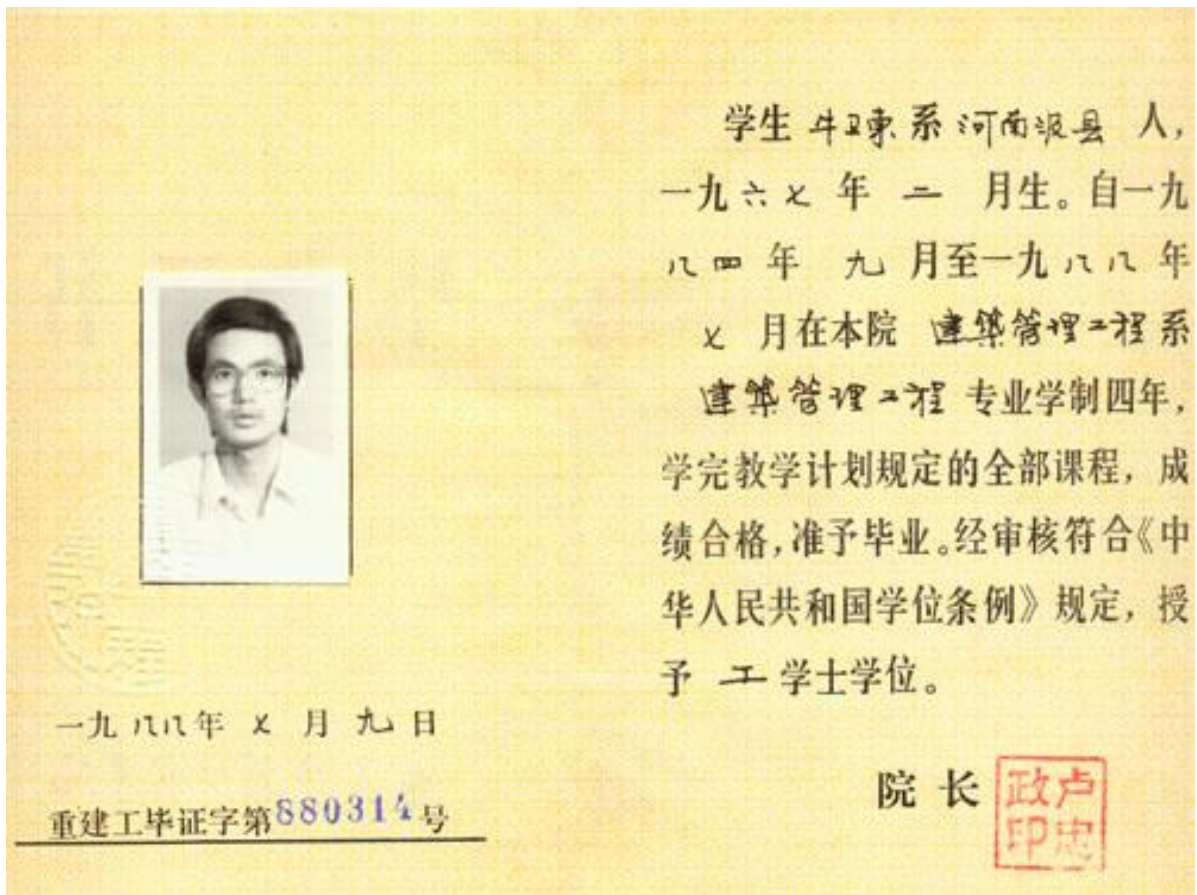 学生 牛卫东 系 河南汲县 人，
一九六七 年 二 月生。自一九
八四 年 九 月至一九八八 年
七 月在本院 建筑管理工程系
建筑管理工程 专业学制四年，
学完教学计划规定的全部课程，成
绩合格，准予毕业。经审核符合《中
华人民共和国学位条例》规定，授
予 工 学士学位。
院长
卢忠政印
一九八八年 七 月 九 日
重建工毕证字第880314号